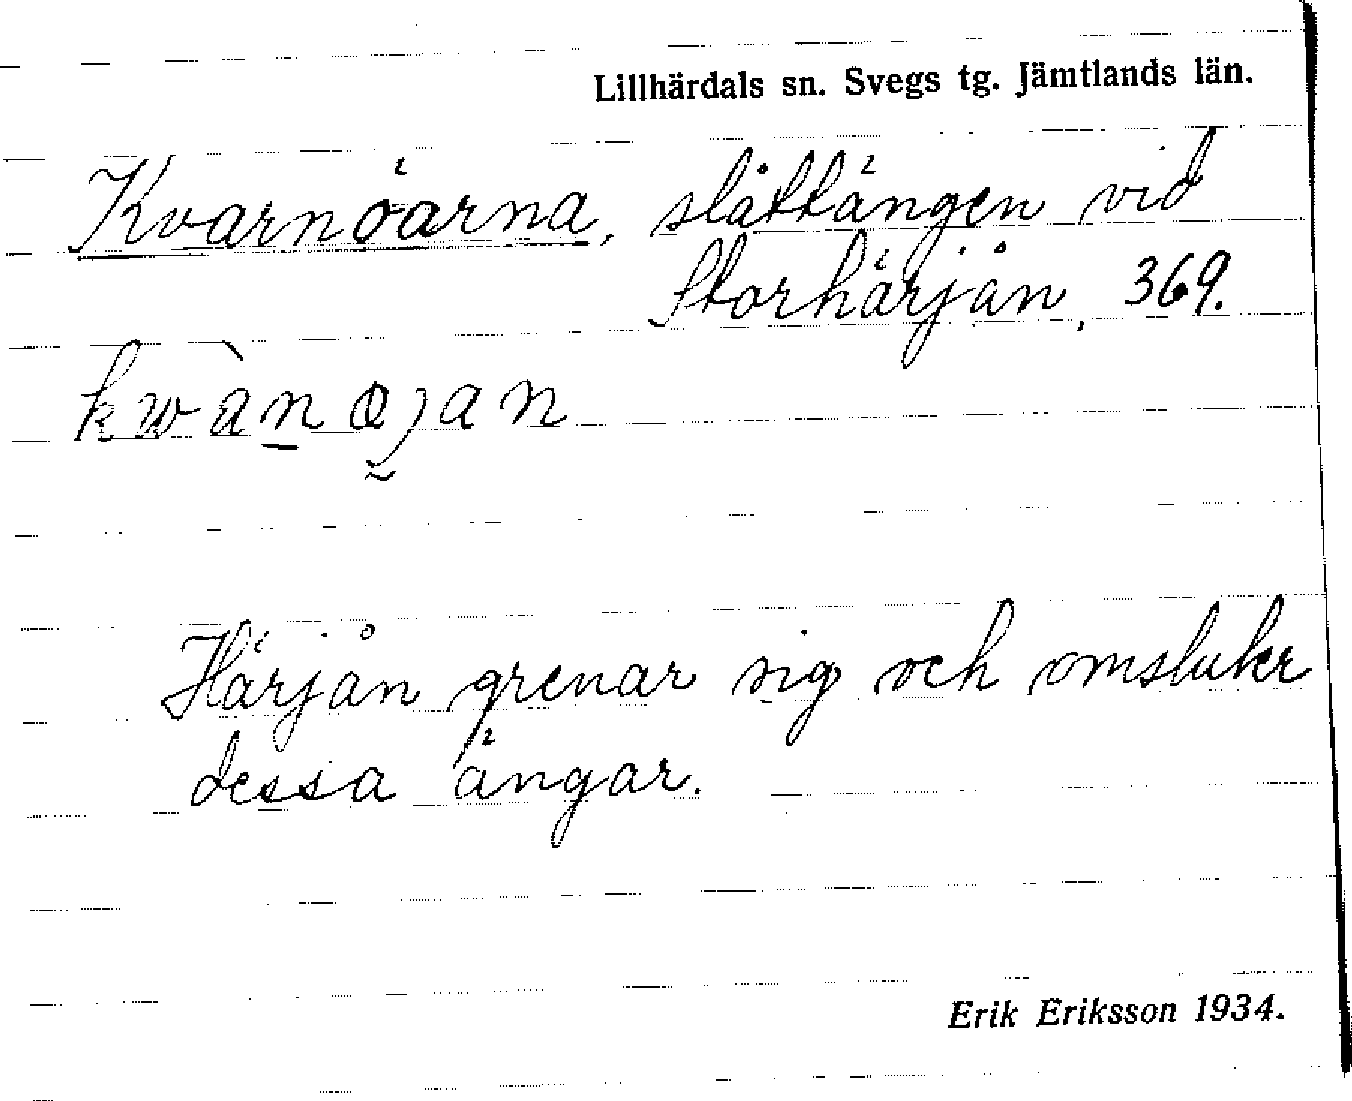 Lillhärdals sn. Svegs tg. Jämtlands län.
Kvarnöarna, slåttängen vid
Storhärjån, 369.
Härjån grenar sig och omsluter
dessa ängar.
Erik Eriksson 1934.